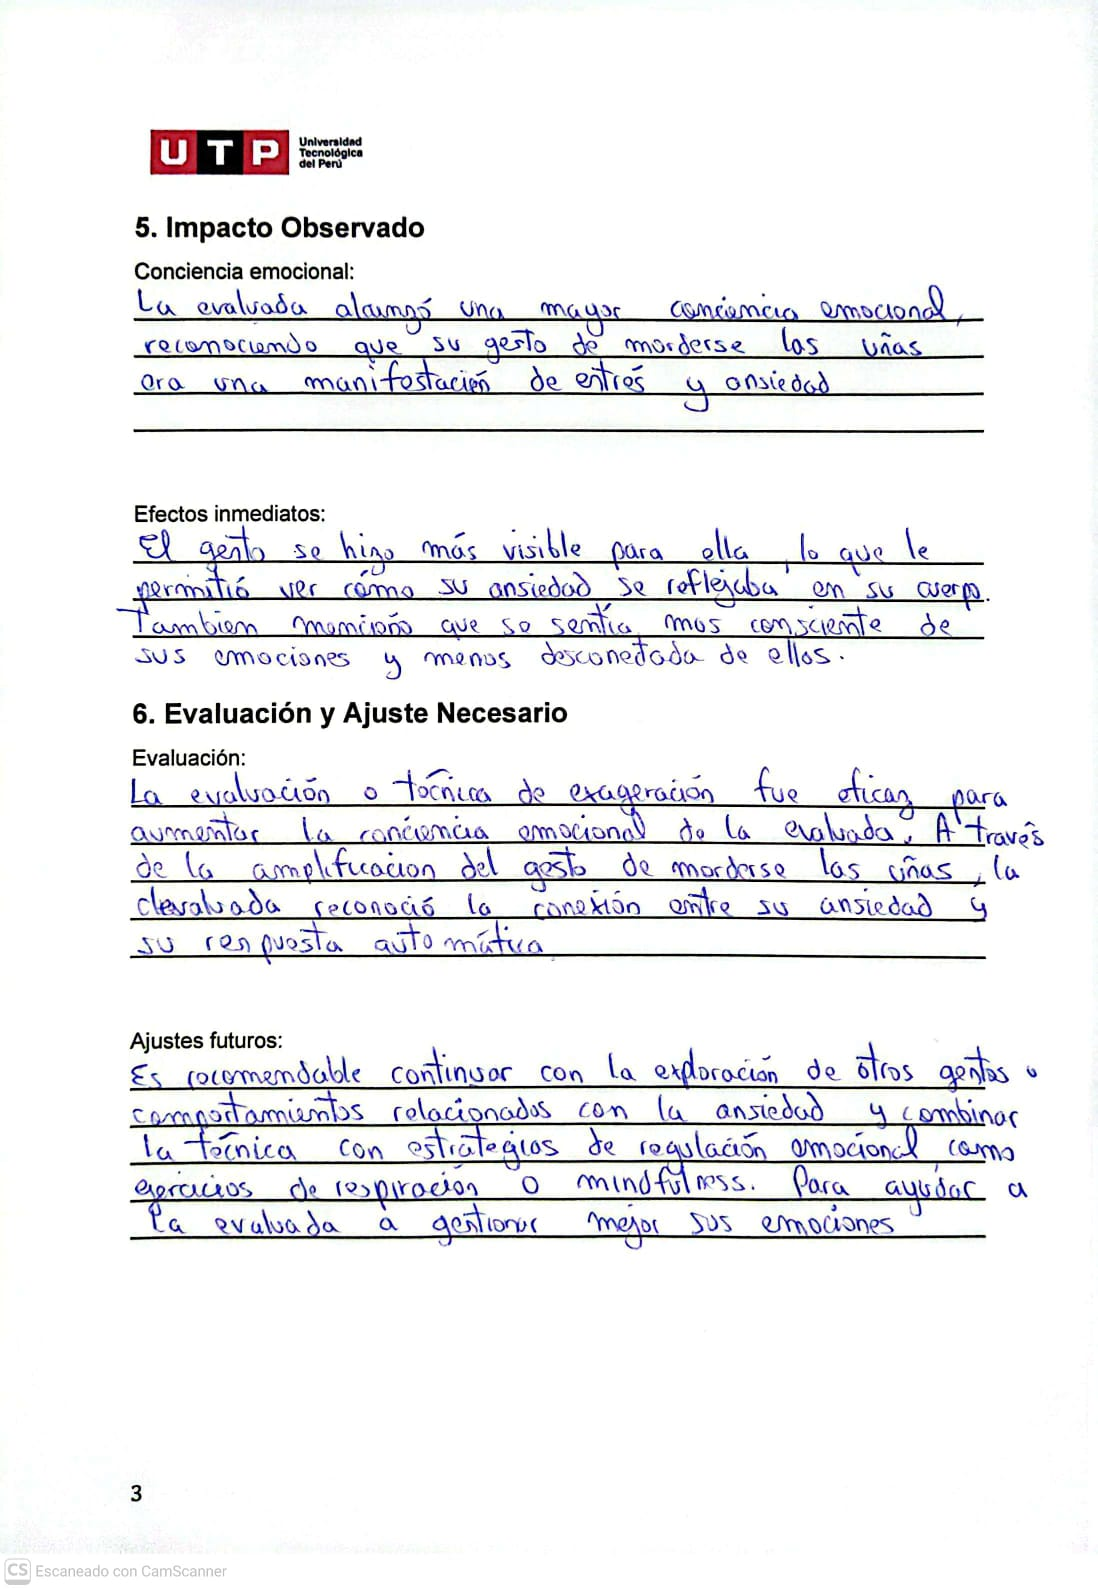 UTP Universidad
Tecnológica
del Perú
5. Impacto Observado
Conciencia emocional:
La evaluada alcanzó una mayor conciencia emocional,
reconociendo que su gesto de morderse las uñas
era una manifestación de entrés y ansiedad
Efectos inmediatos:
El gesto se hizo más visible para ella, lo que le
permitió ver cómo su ansiedad se reflejaba en su cuerpo.
Tambien menciono que se sentía mas consciente de
sus emociones y menos desconetada de ellas.
6. Evaluación y Ajuste Necesario
Evaluación:
La evaluación o técnica de exageración fue eficaz para
aumentar la conciencia emocional de la evaluada. A través
de la amplificacion del gesto de morderse las uñas, la
evaluada reconoció la conexión entre su ansiedad y
su respuesta automática
Ajustes futuros:
Es recomendable continuar con la exploración de otros gestos o
comportamientos relacionados con la ansiedad y combinar
la técnica con estrategias de regulación emocional, como
ejercicios de respiración o mindfulness. Para ayudar a
la evaluada a gestionar mejor sus emociones
3
CS Escaneado con CamScanner